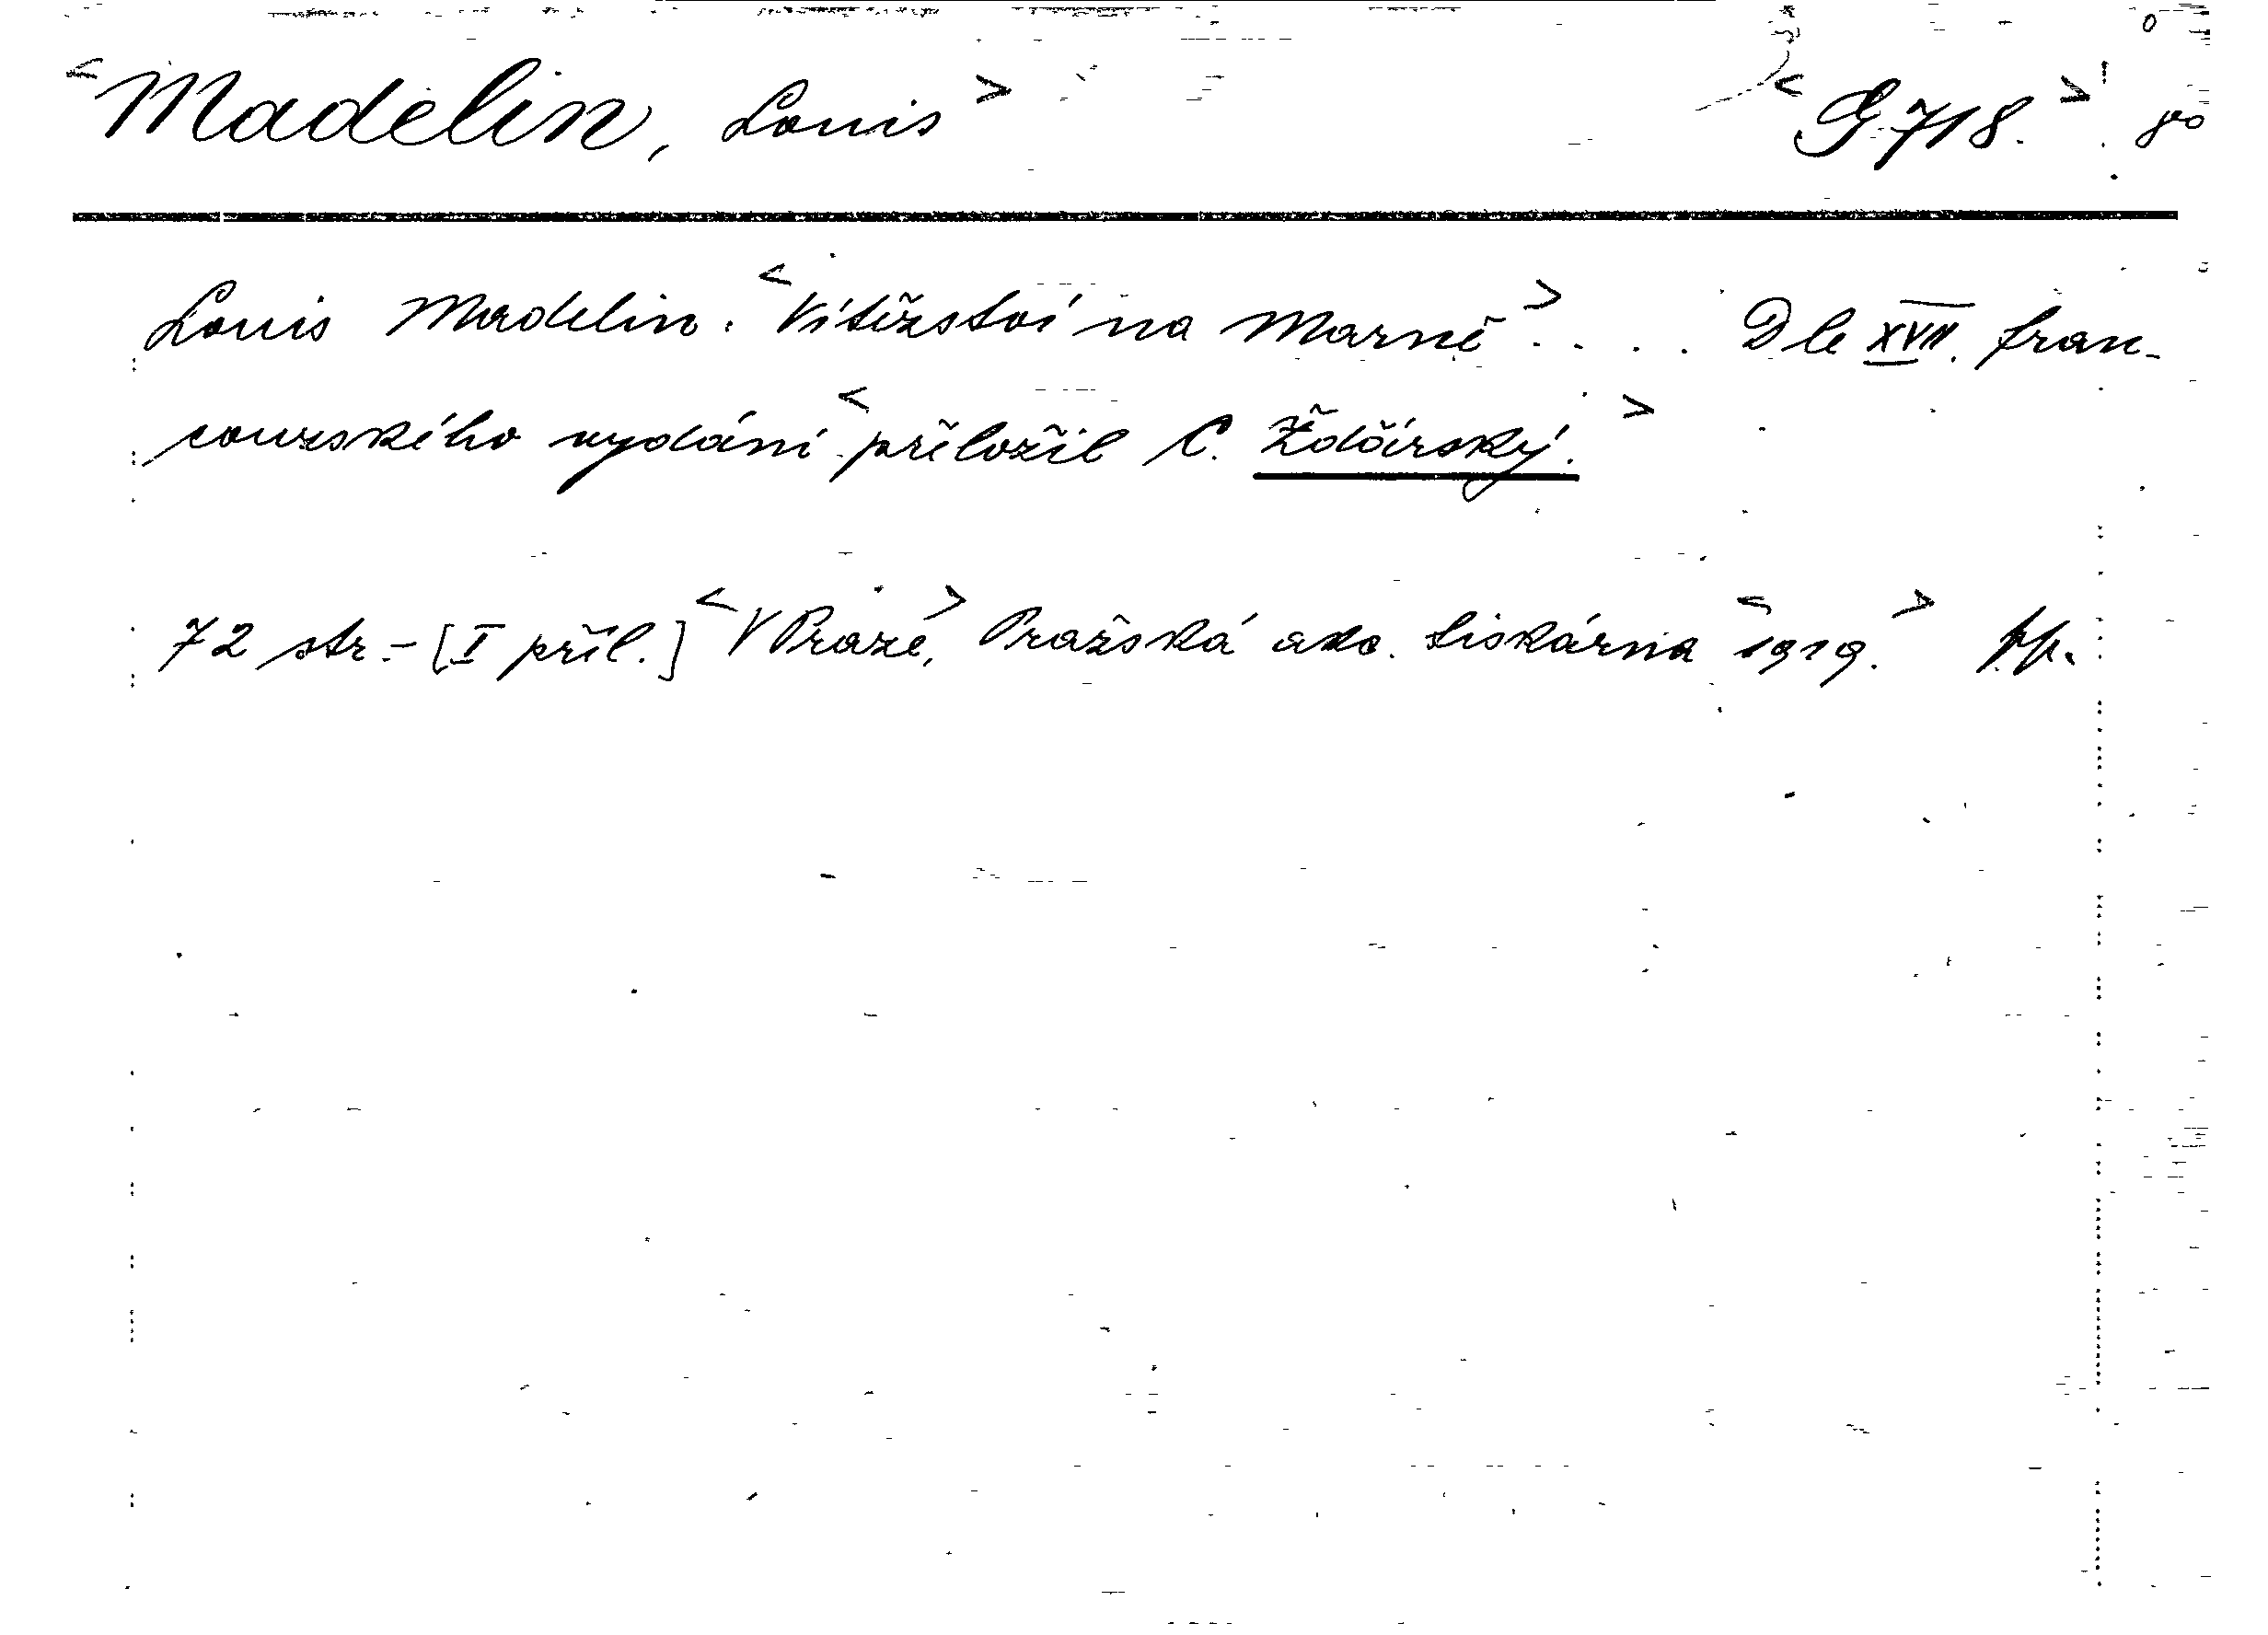 <Madelin, Louis> <G 718.> 8°
Louis Madelin. <Vítězství na Marně> .... Dle XVII. fran-
couzského vydání <přeložil C. Ždčírský.>
72 str. - [I příl.] <V Praze,> Pražská akc. tiskárna <1919.>